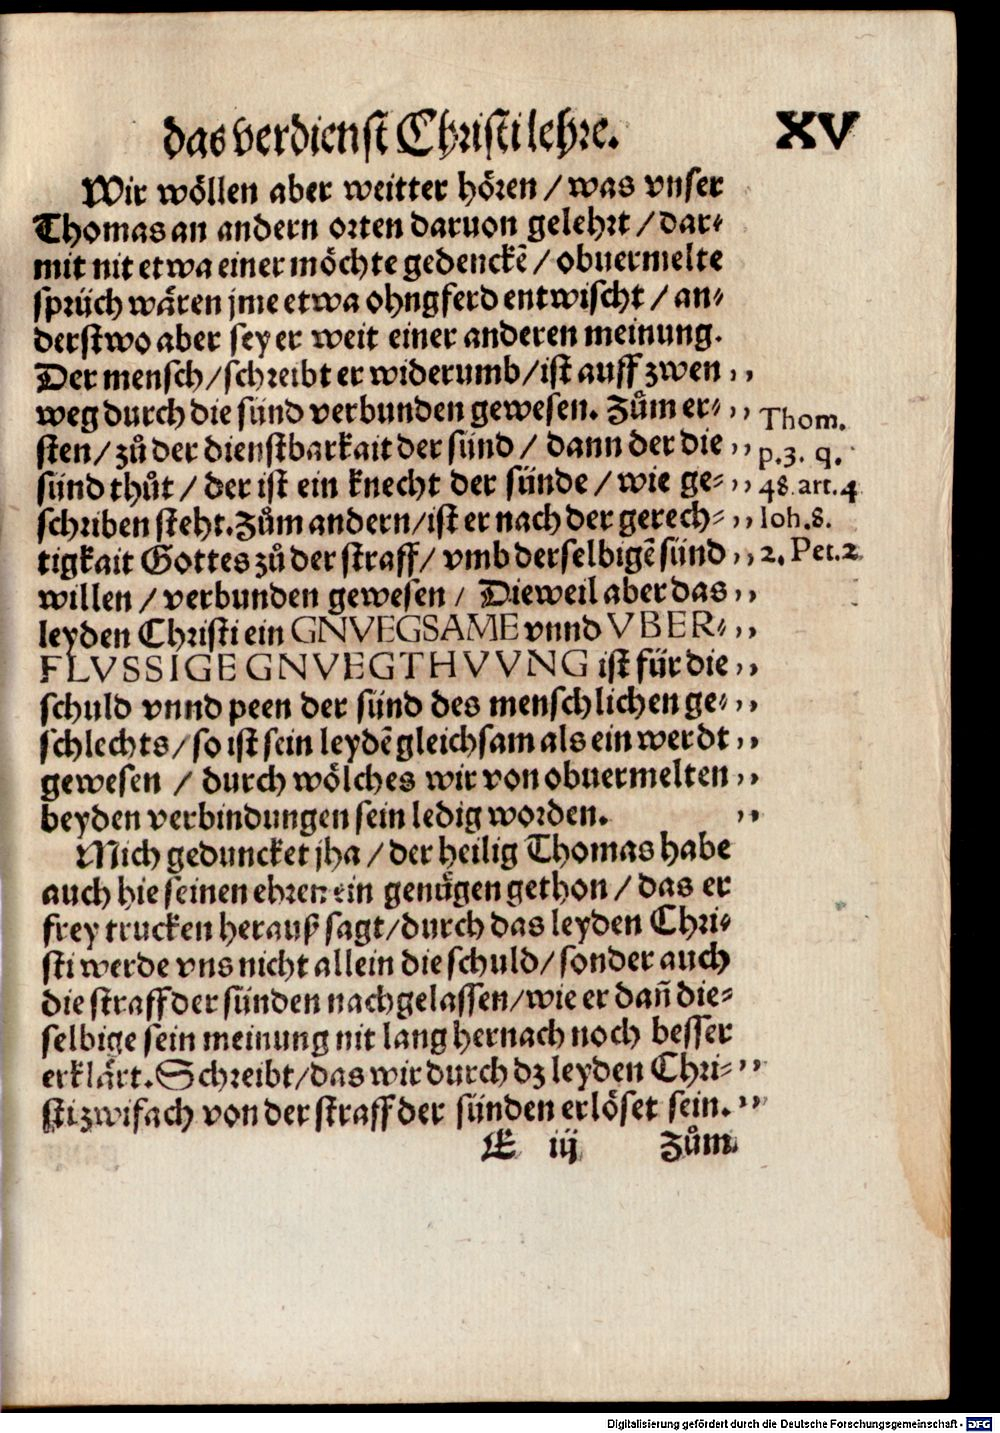 das verdienst Christi lehre. XV
Wir wöllen aber weitter hören / was vnser
Thomas an andern orten daruon gelehrt / dar⸗
mit nit etwa einer möchte gedenckē / obuermelte
sprüch wären jme etwa ohngferd entwischt / an⸗
derstwo aber sey er weit einer anderen meinung.
Der mensch / schreibt er widerumb / ist auff zwen ,,
weg durch die sünd verbunden gewesen. Zům er⸗ ,, Thom.
sten / zů der dienstbarkait der sünd / dann der die ,, p.3. q.
sünd thůt / der ist ein knecht der sünde / wie ge⸗ ,, 48. art. 4
schriben steht. Zům andern / ist er nach der gerech⸗ ,, Ioh.8.
tigkait Gottes zů der straff / vmb derselbigē sünd ,, 2. Pet.2
willen / verbunden gewesen / Dieweil aber das ,,
leyden Christi ein GNVEGSAME vnnd VBER⸗ ,,
FLVSSIGE GNVEGTHVVNG ist für die ,,
schuld vnnd peen der sünd des menschlichen ge⸗ ,,
schlechts / so ist sein leydē gleichsam als ein werdt ,,
gewesen / durch wölches wir von obuermelten ,,
beyden verbindungen sein ledig worden. ,,
Mich geduncket jha / der heilig Thomas habe
auch hie seinen ehren ein genůgen gethon / das er
frey trucken herauß sagt / durch das leyden Chri⸗
sti werde vns nicht allein die schuld / sonder auch
die straff der sünden nachgelassen / wie er dañ die⸗
selbige sein meinung nit lang hernach noch besser
erklärt. Schreibt / das wir durch dz leyden Chri⸗ ,,
sti zwifach von der straff der sünden erlöset sein. ,,
E iij Zům
Digitalisierung gefördert durch die Deutsche Forschungsgemeinschaft - DFG